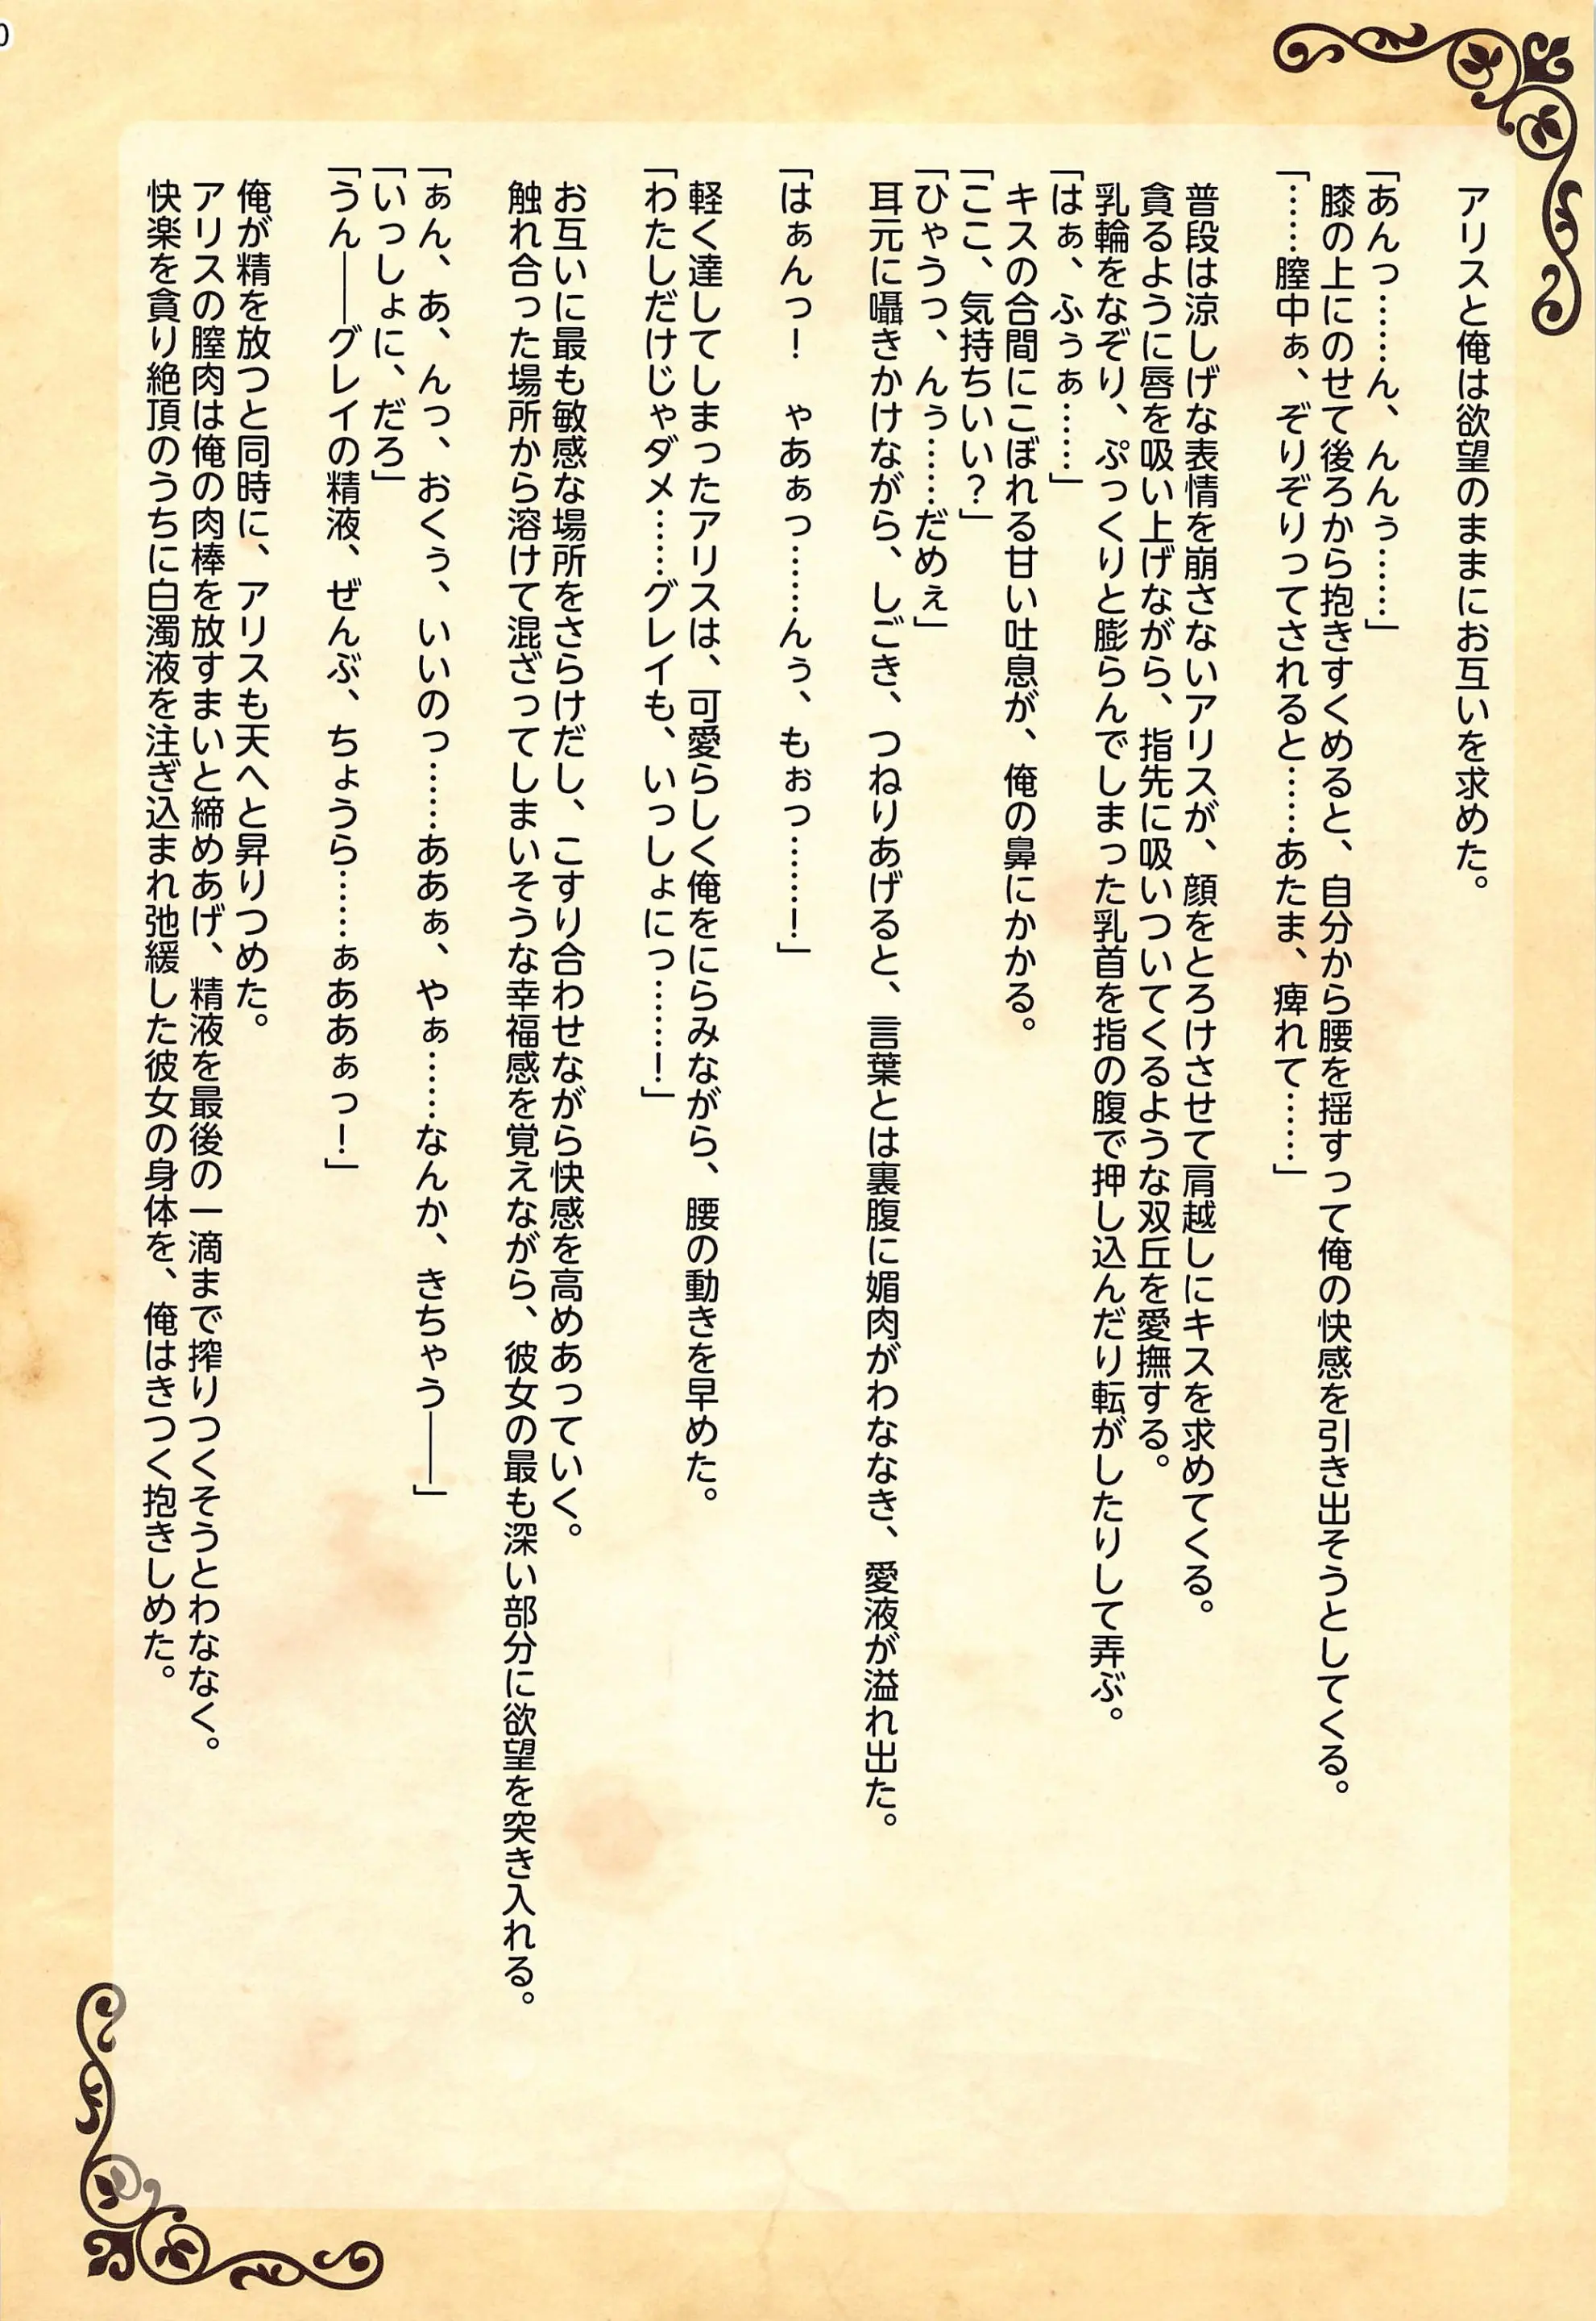 アリスと俺は欲望のままにお互いを求めた。
「あんっ……ん、んんぅ……」
膝の上にのせて後ろから抱きすくめると、自分から腰を揺すって俺の快感を引き出そうとしてくる。
「……膣中ぁ、ぞりぞりってされると……あたま、痺れて……」
普段は涼しげな表情を崩さないアリスが、顔をとろけさせて肩越しにキスを求めてくる。
貪るように唇を吸い上げながら、指先に吸いついてくるような双丘を愛撫する。
乳輪をなぞり、ぷっくりと膨らんでしまった乳首を指の腹で押し込んだり転がしたりして弄ぶ。
「はぁ、ふぅぁ……」
キスの合間にこぼれる甘い吐息が、俺の鼻にかかる。
「ここ、気持ちいい?」
「ひゃうっ、んぅ……だめぇ」
耳元に囁きかけながら、しごき、つねりあげると、言葉とは裏腹に媚肉がわななき、愛液が溢れ出た。
「はぁんっ! ゃあぁっ……んぅ、もぉっ……!」
軽く達してしまったアリスは、可愛らしく俺をにらみながら、腰の動きを早めた。
「わたしだけじゃダメ……グレイも、いっしょにっ……!」
お互いに最も敏感な場所をさらけだし、こすり合わせながら快感を高めあっていく。
触れ合った場所から溶けて混ざってしまいそうな幸福感を覚えながら、彼女の最も深い部分に欲望を突き入れる。
「ぁん、あ、んっ、おくぅ、いいのっ……ああぁ、やぁ……なんか、きちゃう――」
「いっしょに、だろ」
「うん――グレイの精液、ぜんぶ、ちょうら……ぁああぁっ!」
俺が精を放つと同時に、アリスも天へと昇りつめた。
アリスの膣肉は俺の肉棒を放すまいと締めあげ、精液を最後の一滴まで搾りつくそうとわななく。
快楽を貪り絶頂のうちに白濁液を注ぎ込まれ弛緩した彼女の身体を、俺はきつく抱きしめた。